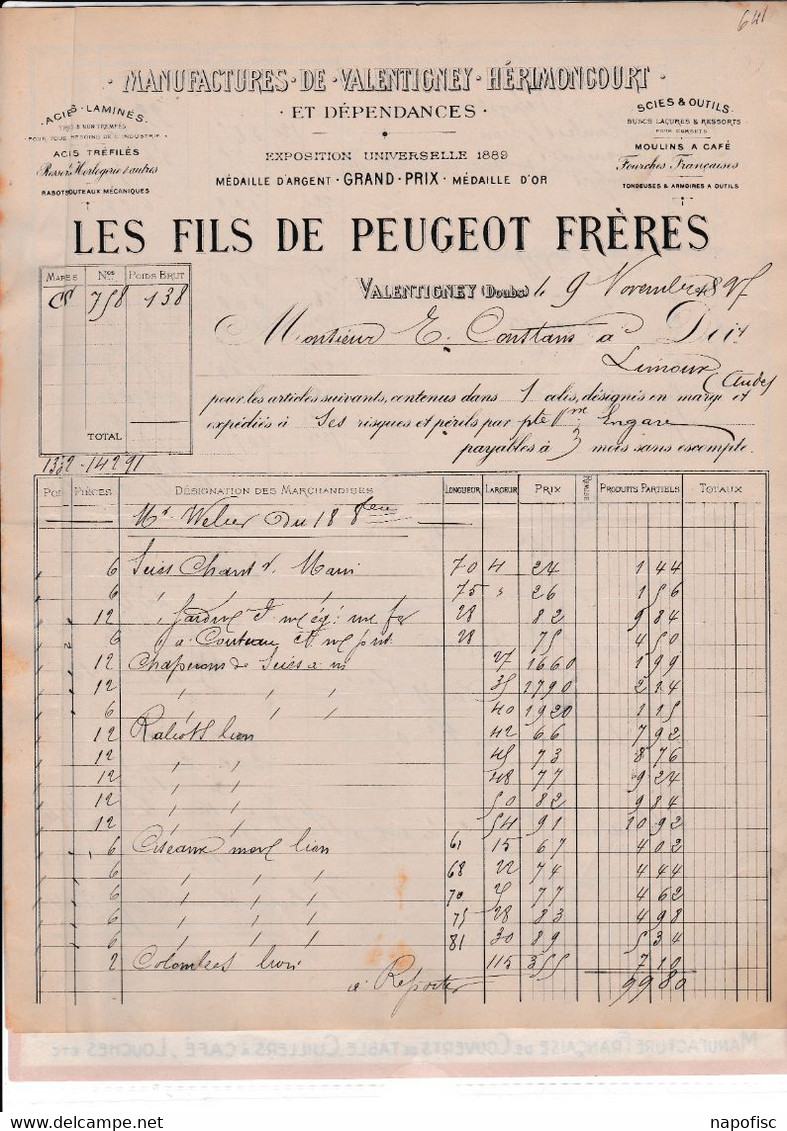 641
MANUFACTURES · DE · VALENTIGNEY · HÉRIMONCOURT
· ET DÉPENDANCES ·
EXPOSITION UNIVERSELLE 1889
MÉDAILLE D'ARGENT · GRAND · PRIX · MÉDAILLE D'OR
ACIES LAMINÉS
POUR TOUS BESOINS DE L'INDUSTRIE
ACIS TRÉFILÉS
Horlogerie & autres
RABOTS OUTEAUX MÉCANIQUES
SCIES & OUTILS
BUSCS LAÇURES & RESSORTS
POUR CORSETS
MOULINS A CAFÉ
Fourches Françaises
TONDEUSES & ARMOIRES A OUTILS
LES FILS DE PEUGEOT FRÈRES
MARES Nos POIDS BRUT
758 138
TOTAL
1332 - 14291
VALENTIGNEY (Doubs) le 9 Novembre 1897
Monsieur E. Constans à Dit
Limoux (Aude)
pour les articles suivants, contenus dans 1 colis, désignés en marge et
expédiés à Ses risques et périls par pte Vme Engare
payables à 3 mois sans escompte.
POS PIÈCES DÉSIGNATION DES MARCHANDISES LONGUEUR LARGEUR PRIX REMISE PRODUITS PARTIELS TOTAUX
Mr Weber Du 18
6 Scies Chant 70 4 24 1 44
6 " 75 " 26 1 56
12 " 28 82 9 84
6 " a Couteau 28 75 4 50
12 Chaperons de Scies a 27 1660 1 99
12 " " " 35 1790 2 14
6 " " " 40 1920 1 15
12 Rabots lion 42 66 7 92
12 " " 45 73 8 76
12 " " 48 77 9 24
12 " " 50 82 9 84
12 " " 54 91 10 92
6 Ciseaux lion 61 15 67 4 02
6 " " " 68 22 74 4 44
6 " " " 70 25 77 4 62
6 " " " 75 28 83 4 98
6 " " " 81 30 89 5 34
2 Colombes lion 115 355 7 10
a Reporter 99 80
MANUFACTURE FRANÇAISE DE COUVERTS DE TABLE, CUILLERS A CAFÉ, LOUCHES ETC
www.delcampe.net
napofisc